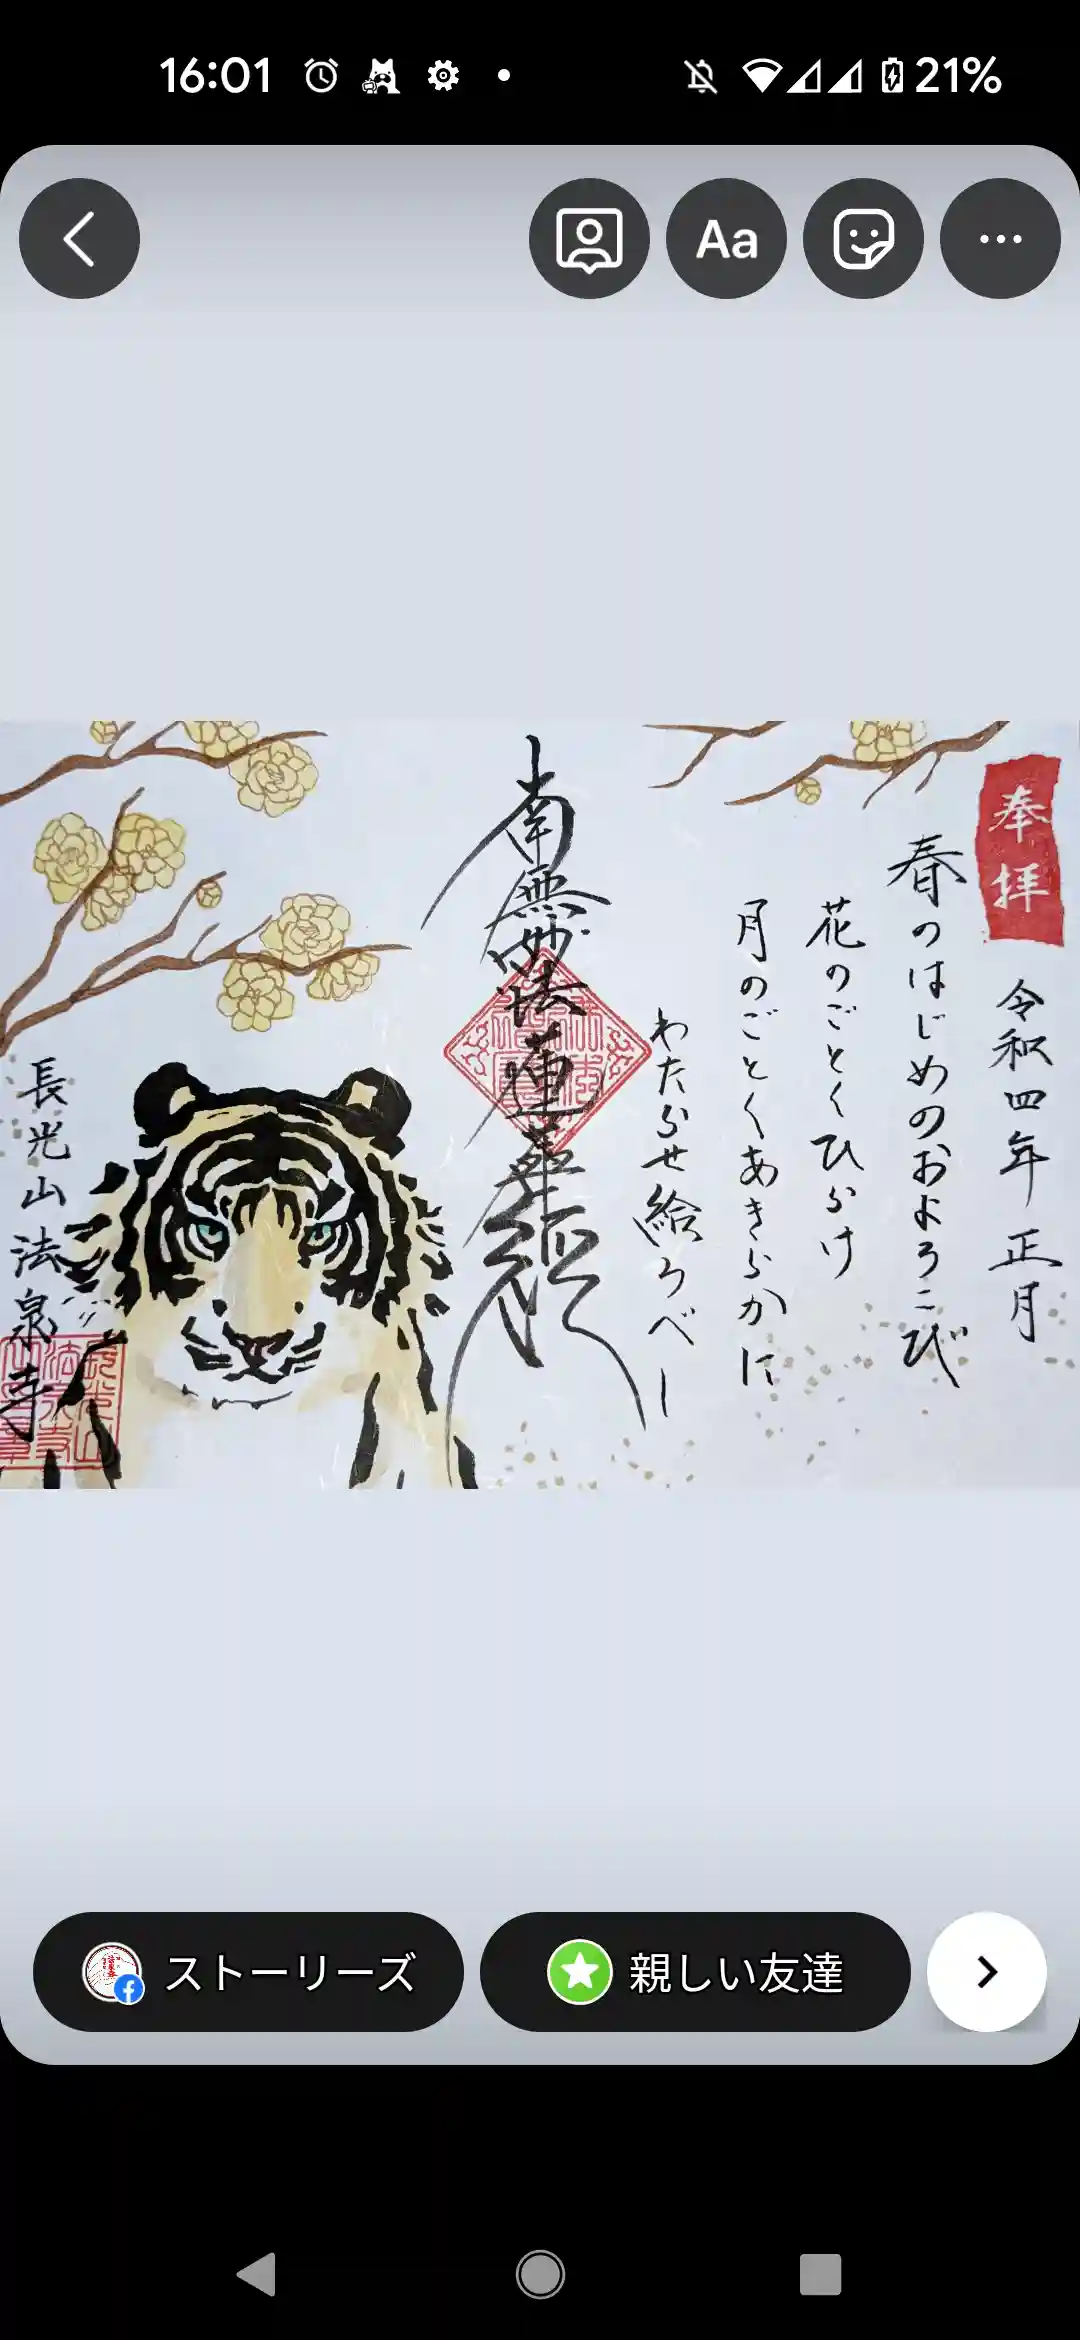 16:01
21%
Aa
奉拝
令和四年 正月
春のはじめのおよろこび
花のごとくひらけ
月のごとくあきらかに
わたらせ給うべし
南無妙法蓮華経
長光山法泉寺
ストーリーズ
親しい友達